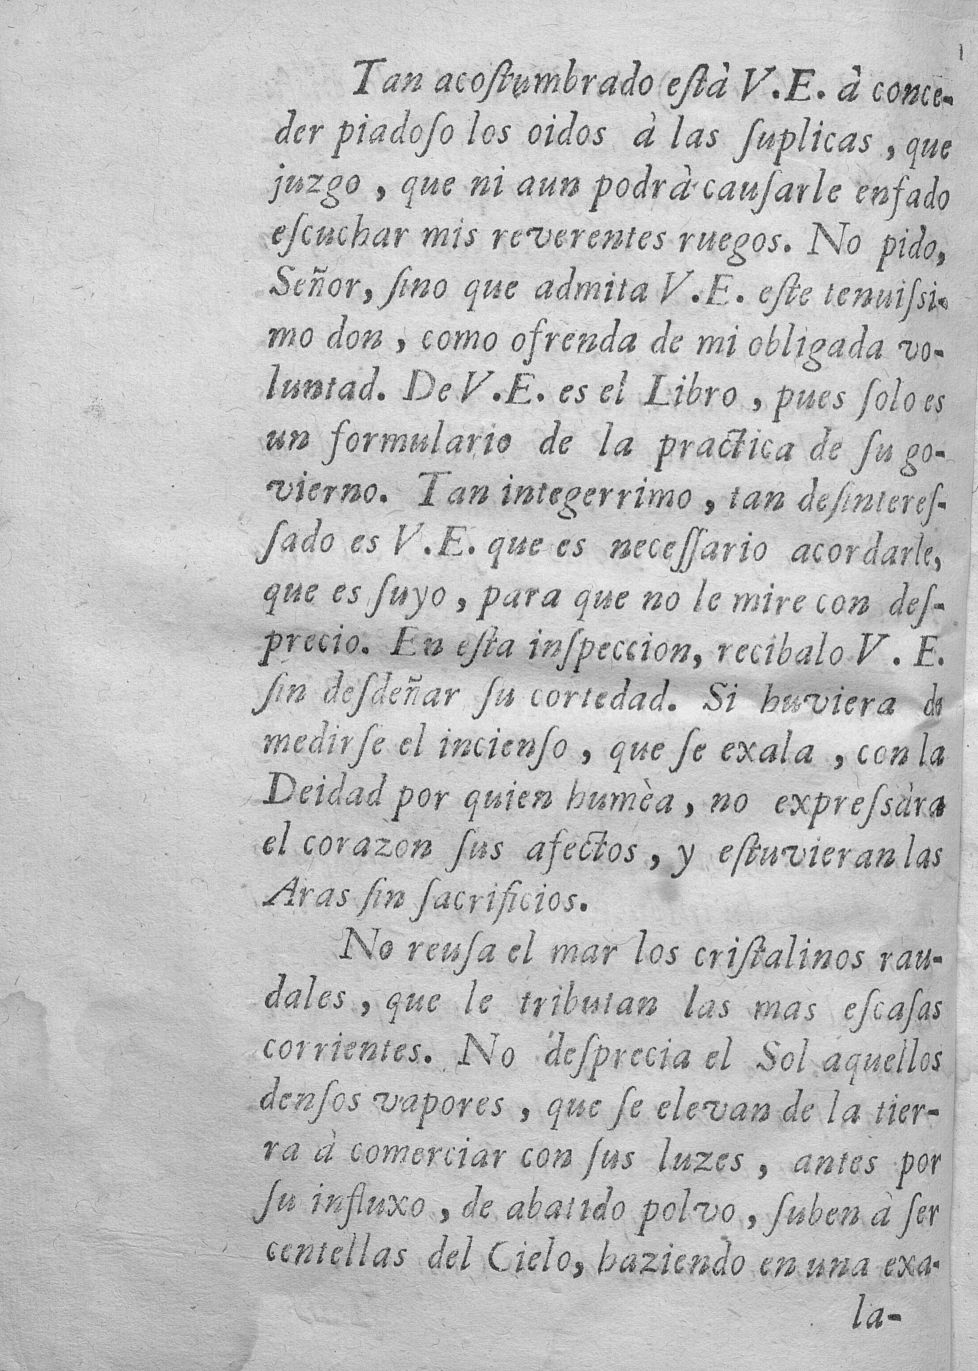 Tan acoſtumbrado eſtà V.E. à conce-
der piadoſo los oidos à las ſuplicas, que
juzgo, que ni aun podrà cauſarle enfado
eſcuchar mis reverentes ruegos. No pido,
Señor, ſino que admita V.E. eſte tenuiſsi-
mo don, como ofrenda de mi obligada vo-
luntad. De V.E. es el Libro, pues ſolo es
un formulario de la practica de ſu go-
vierno. Tan integerrimo, tan deſintereſ-
ſado es V.E. que es neceſſario acordarle,
que es ſuyo, para que no le mire con deſ-
precio. En eſta inſpeccion, recibalo V. E.
ſin deſdeñar ſu cortedad. Si huviera de
medirſe el incienſo, que ſe exala, con la
Deidad por quien humèa, no expreſsàra
el corazon ſus afectos, y eſtuvieran las
Aras ſin ſacrificios.
No reuſa el mar los criſtalinos rau-
dales, que le tributan las mas eſcaſas
corrientes. No deſprecia el Sol aquellos
denſos vapores, que ſe elevan de la tier-
ra à comerciar con ſus luzes, antes por
ſu influxo, de abatido polvo, ſuben à ſer
centellas del Cielo, haziendo en una exa-
la-